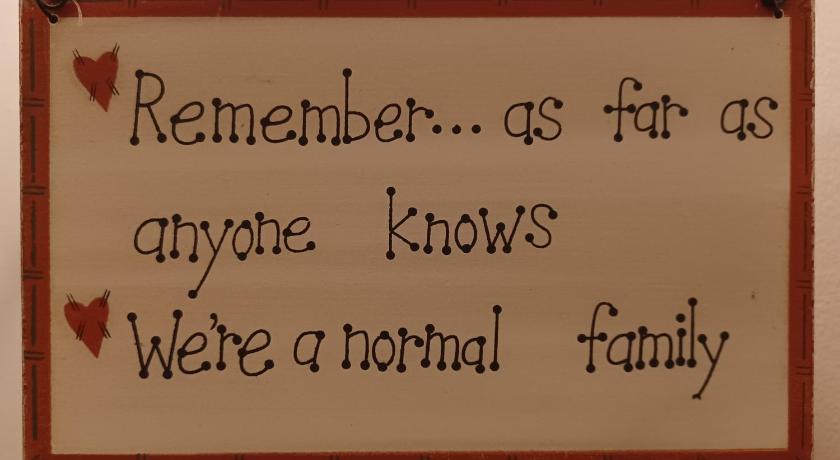 Remember... as far as
anyone knows
We're a normal family